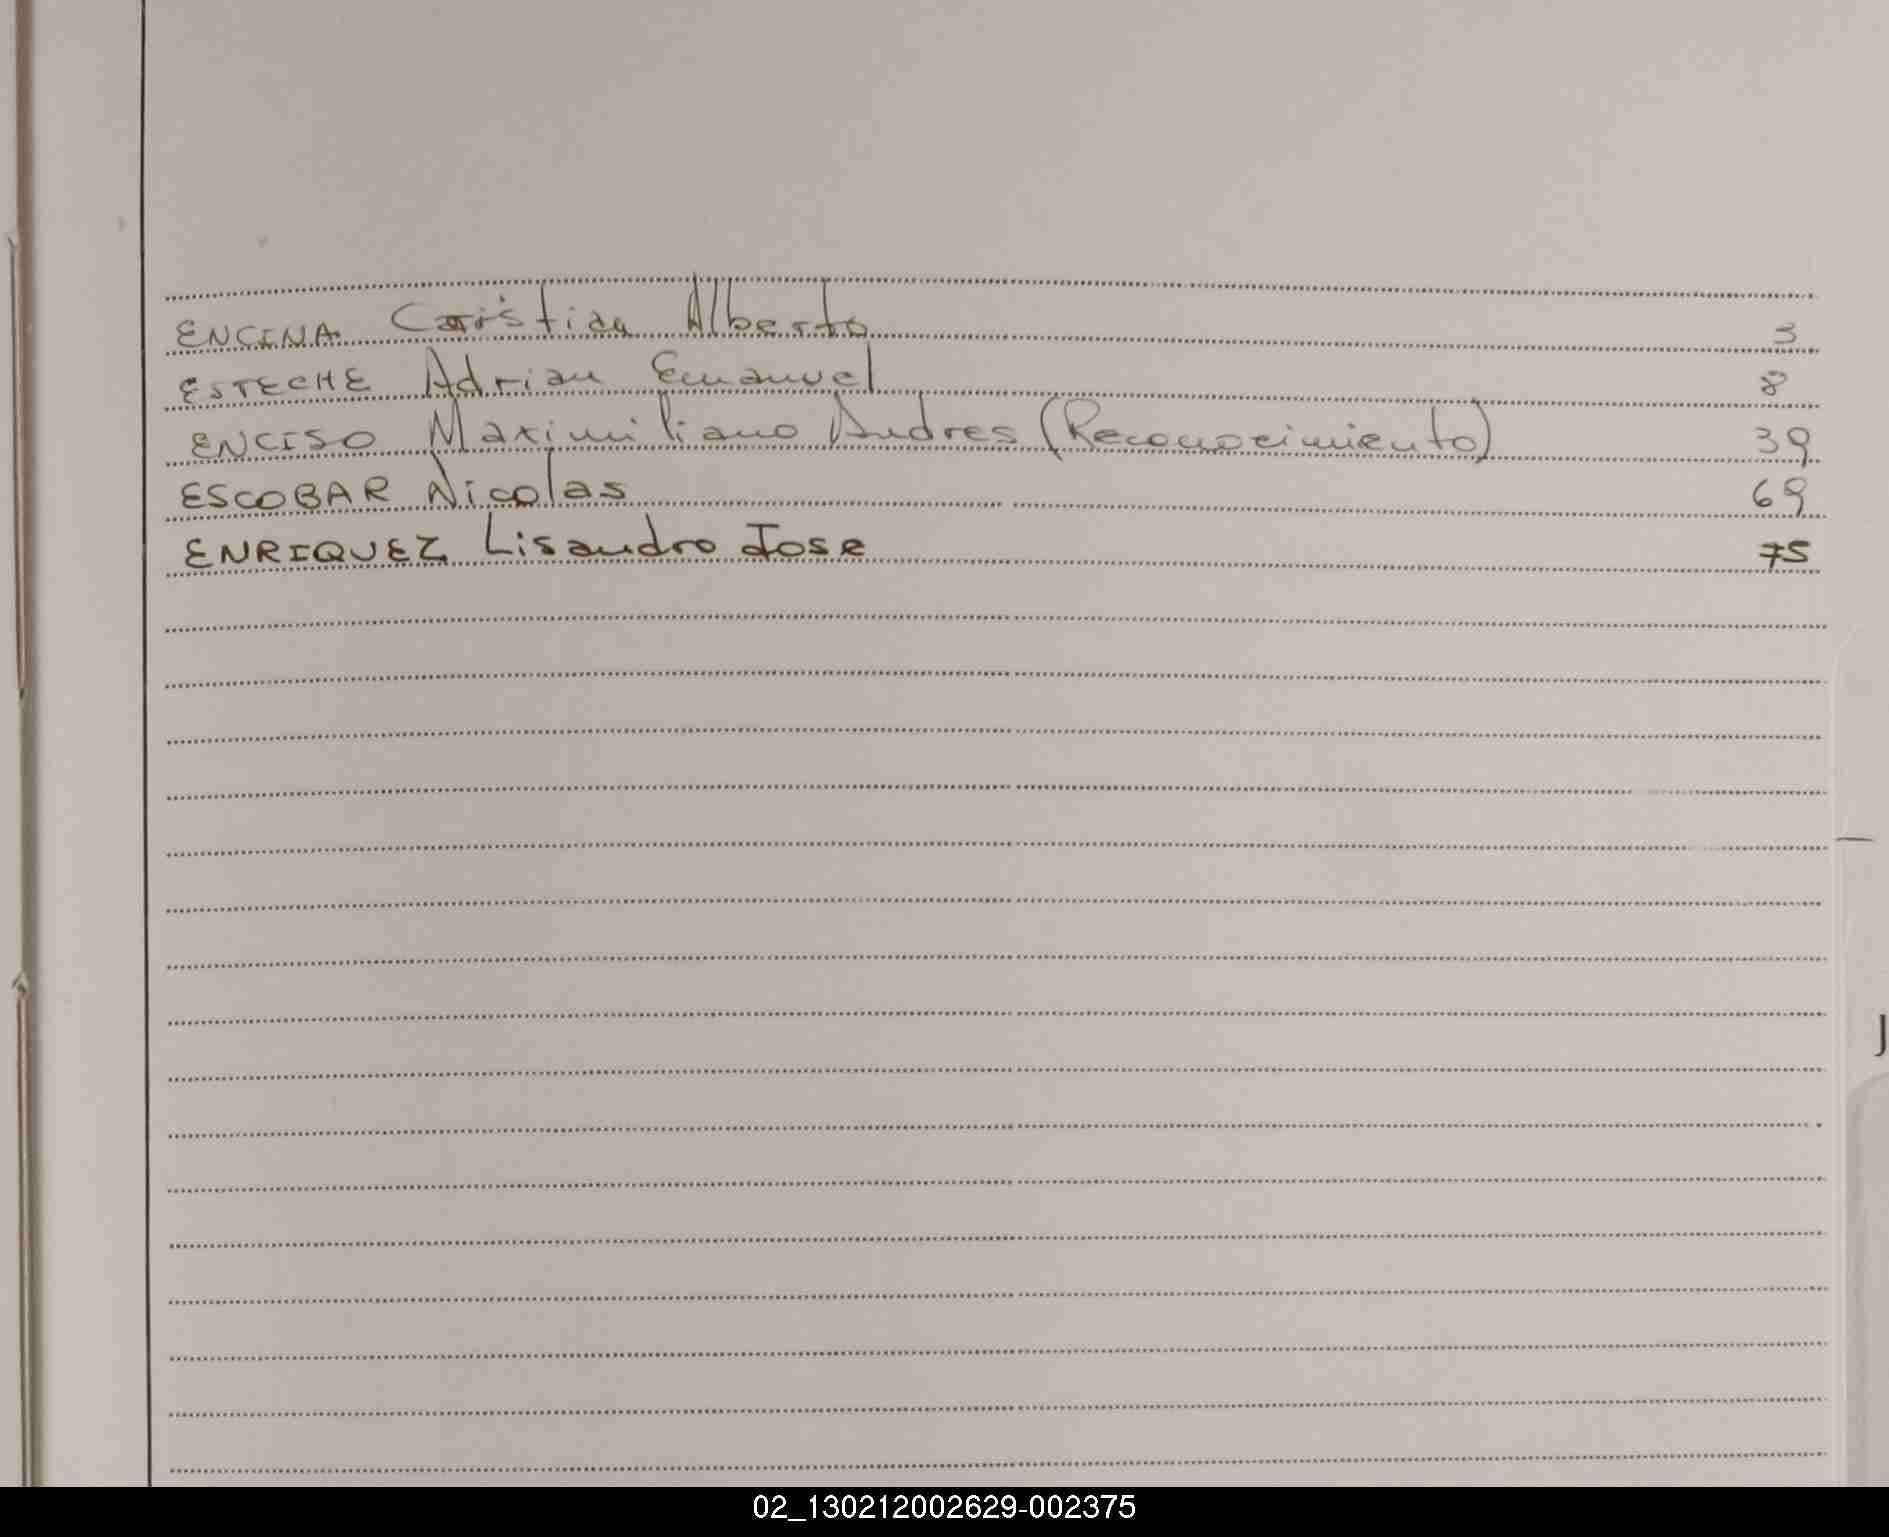 ENCINA Cristian Alberto 3
ESTECHE Adrian Emanuel 8
ENCISO Maximiliano Andres (Reconocimiento) 39
ESCOBAR Nicolas 69
ENRIQUEZ Lisandro Jose 75
J
02_130212002629-002375